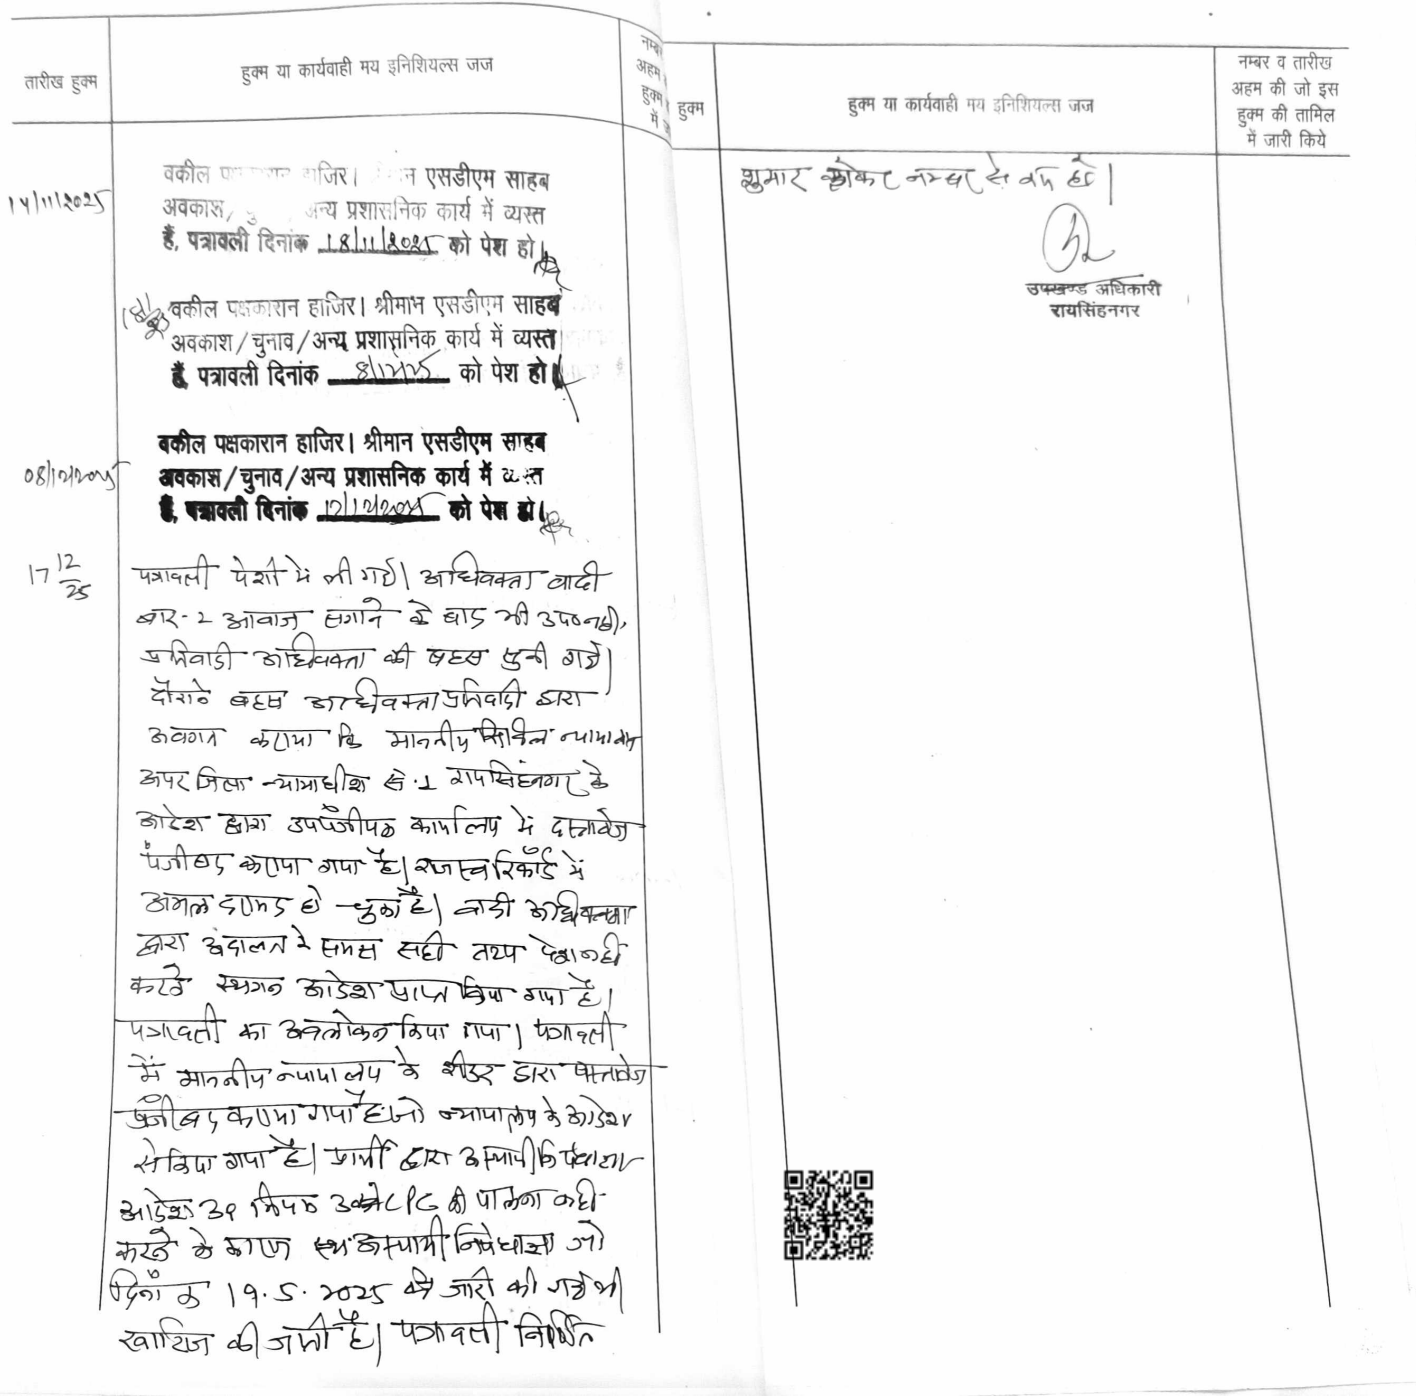 तारीख हुक्म
हुक्म या कार्यवाही मय इनिशियल्स जज
14/11/2025
वकील हाजिर। एसडीएम साहब
अवकाश, अन्य प्रशासनिक कार्य में व्यस्त
हैं, पत्रावली दिनांक 18/11/2025 को पेश हो।
वकील पक्षकारान हाजिर। श्रीमान एसडीएम साहब
अवकाश/चुनाव/अन्य प्रशासनिक कार्य में व्यस्त
हैं, पत्रावली दिनांक 8/12/25 को पेश हो।
08/12/2025
वकील पक्षकारान हाजिर। श्रीमान एसडीएम साहब
अवकाश/चुनाव/अन्य प्रशासनिक कार्य में व्यस्त
हैं, पत्रावली दिनांक को पेश हो।
17 12/25
पत्रावली पेशी में ली गई। अधिवक्ता वादी
बार-2 आवाज लगाने के बाद भी उप० नही,
प्रतिवादी अधिवक्ता की बहस सुनी गई।
दौराने बहस अधिवक्ता प्रतिवादी द्वारा
अवगत कराया कि माननीय सिविल न्यायालय
अपर जिला न्यायाधीश सं.1 रायसिंहनगर के
आदेश द्वारा उपपंजीयक कार्यालय में दस्तावेज
पंजीबद्ध कराया गया है। राजस्व रिकॉर्ड में
अमल दरामद हो चुका है। वादी अधिवक्ता
द्वारा अदालत के समक्ष सही तथ्य पेश नही
करके स्थगन आदेश प्राप्त किया गया है।
पत्रावली का अवलोकन किया गया। पत्रावली
में माननीय न्यायालय के रीडर द्वारा दस्तावेज
पंजीबद्ध कराया गया है जो न्यायालय के आदेश
से किया गया है। प्रार्थी द्वारा अस्थायी निषेधाज्ञा
आदेश 39 नियम 3 CPC की पालना नही
करने के कारण अस्थायी निषेधाज्ञा जो
दिनांक 19.5.2025 को जारी की गई थी
खारिज की जाती है। पत्रावली निर्णित
हुक्म
हुक्म या कार्यवाही मय इनिशियल्स जज
नम्बर व तारीख
अहम की जो इस
हुक्म की तामिल
में जारी किये
शुमार होकर नम्बर से कम हो।
उपखण्ड अधिकारी
रायसिंहनगर